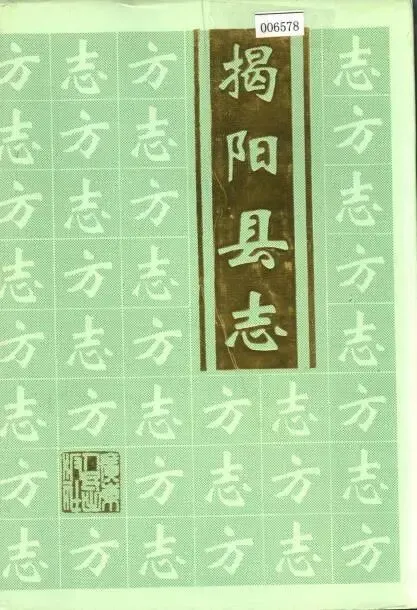 006578
揭阳县志
方志方志
志方志方
方志方志
志方志方
方志方志
志方志方志方
方方志方志
志方志方志方